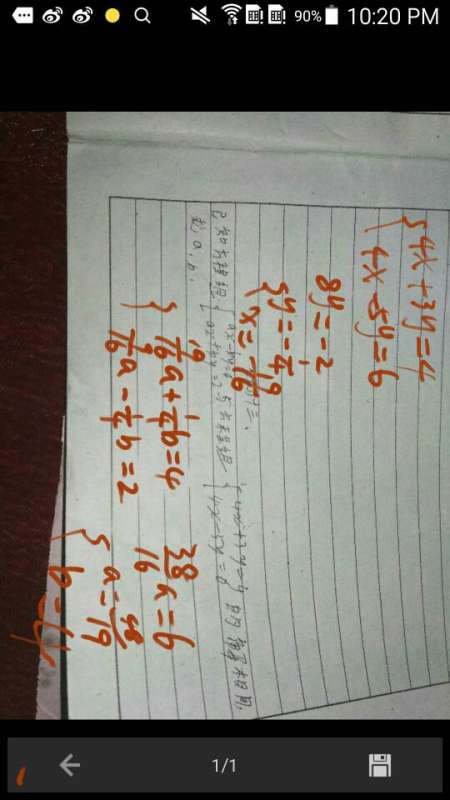 90% 10:20 PM
{4x+3y=4
4x-5y=6
8y=-2
{y=-1/4
x=19/16
已知方程组
与方程组 {4x+3y=4 的解相同,
求 a, b.
{19/16a+1/4b=4
19/16a-1/4b=2
38/16a=6
{a=48/19
b=4
1/1